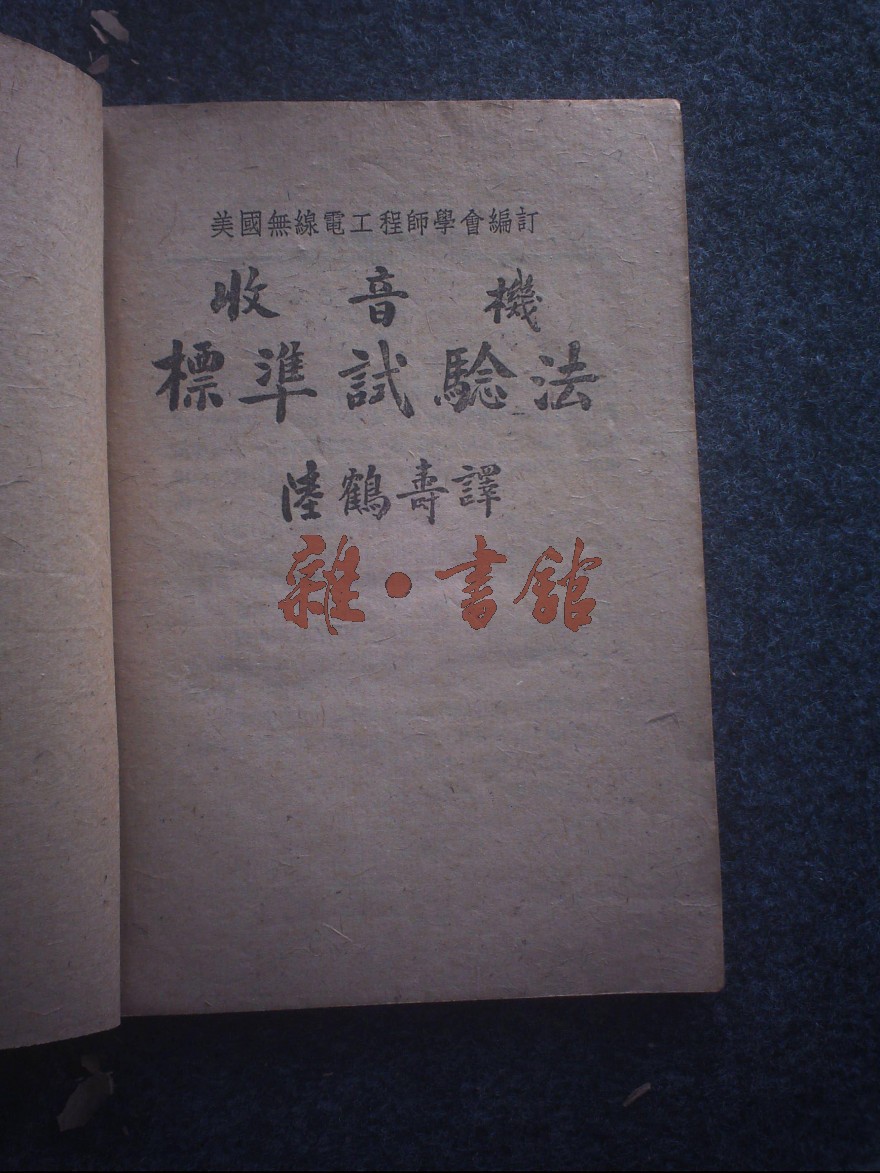 美國無線電工程師學會編訂
收音機
標準試驗法
陸鶴壽譯
雜·書館